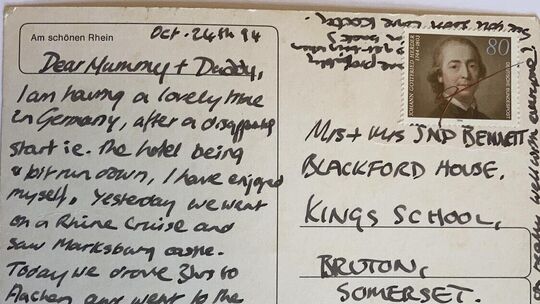 Am schönen Rhein
Oct. 24th 94
Dear Mummy + Daddy,
I am having a lovely time
in Germany, after a disappointing
start ie. the hotel being
a bit run down, I have enjoyed
myself. Yesterday we went
on a Rhine Cruise and
saw Marksburg castle.
Today we drove 3hrs to
Aachen and went to the
See you soon love
80
JOHANN GOTTFRIED HERDER
1744-1803
DEUTSCHE BUNDESPOST
Mrs + Mrs JND BENNETT
BLACKFORD HOUSE,
KINGS SCHOOL,
BRUTON,
SOMERSET.
really well with everyone!